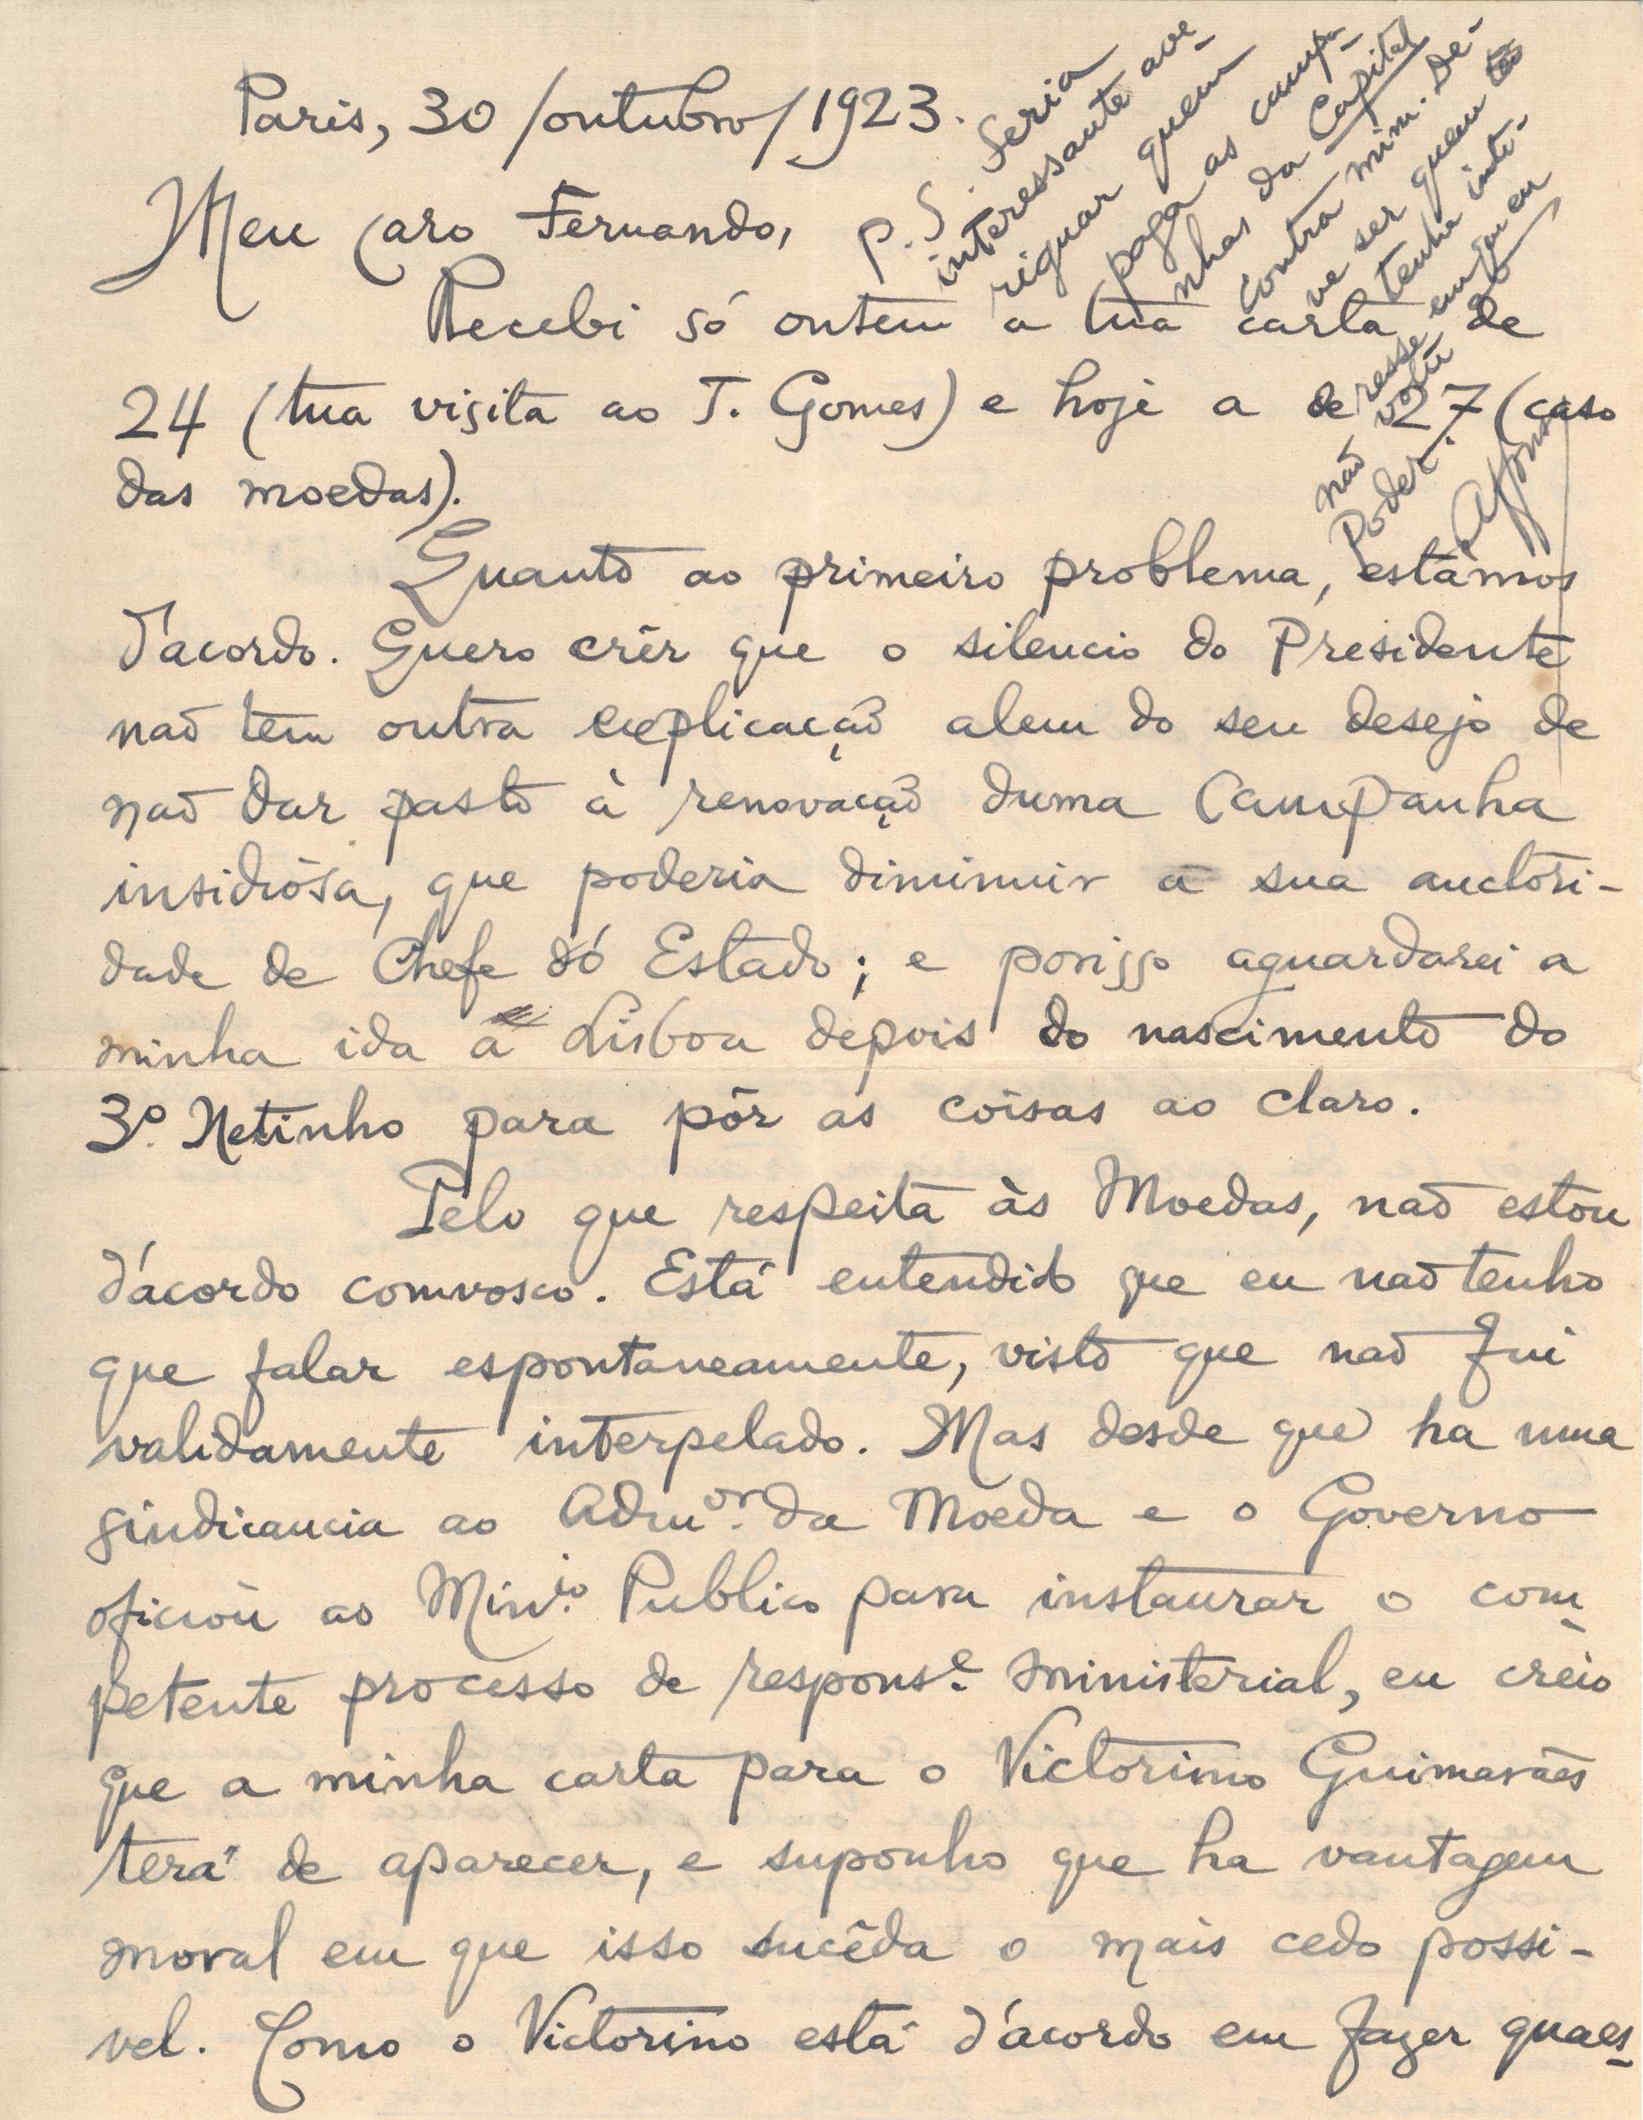 Paris, 30/outubro/1923.
Meu Caro Fernando,
Recebi só ontem a tua carta de
24 (tua visita ao T. Gomes) e hoje a de 27 (caso
das moedas).
Quanto ao primeiro problema, estâmos
d'acordo. Quero crêr que o silencio do Presidente
não tem outra explicação alem do seu desejo de
não dar pasto à renovação duma Campanha
insidiósa, que poderia diminuir a sua auctori-
dade de Chefe dó Estado; e porisso aguardarei a
minha ida a Lisboa depois do nascimento do
3º. Netinho para pôr as coisas ao claro.
Pelo que respeita às Moedas, não estou
d'acordo comvosco. Está entendido que eu não tenho
que falar espontaneamente, visto que não fui
validamente interpelado. Mas desde que ha uma
sindicancia ao Adm.or da Moeda e o Governo
oficiou ao Min.io Publico para instaurar o com-
petente processo de respons.e ministerial, eu creio
que a minha carta para o Victorino Guimarães
terá de aparecer, e suponho que ha vantagem
moral em que isso sucêda o mais cedo possi-
vel. Como o Victorino está d'acordo em fazer quaes-
p.S. Seria
interessante ave-
riguar quem
paga as campa-
nhas da Capital
contra mim. De-
ve ser quem
tenha inte-
resse em que eu
não volte ao
Poder.
Affonso